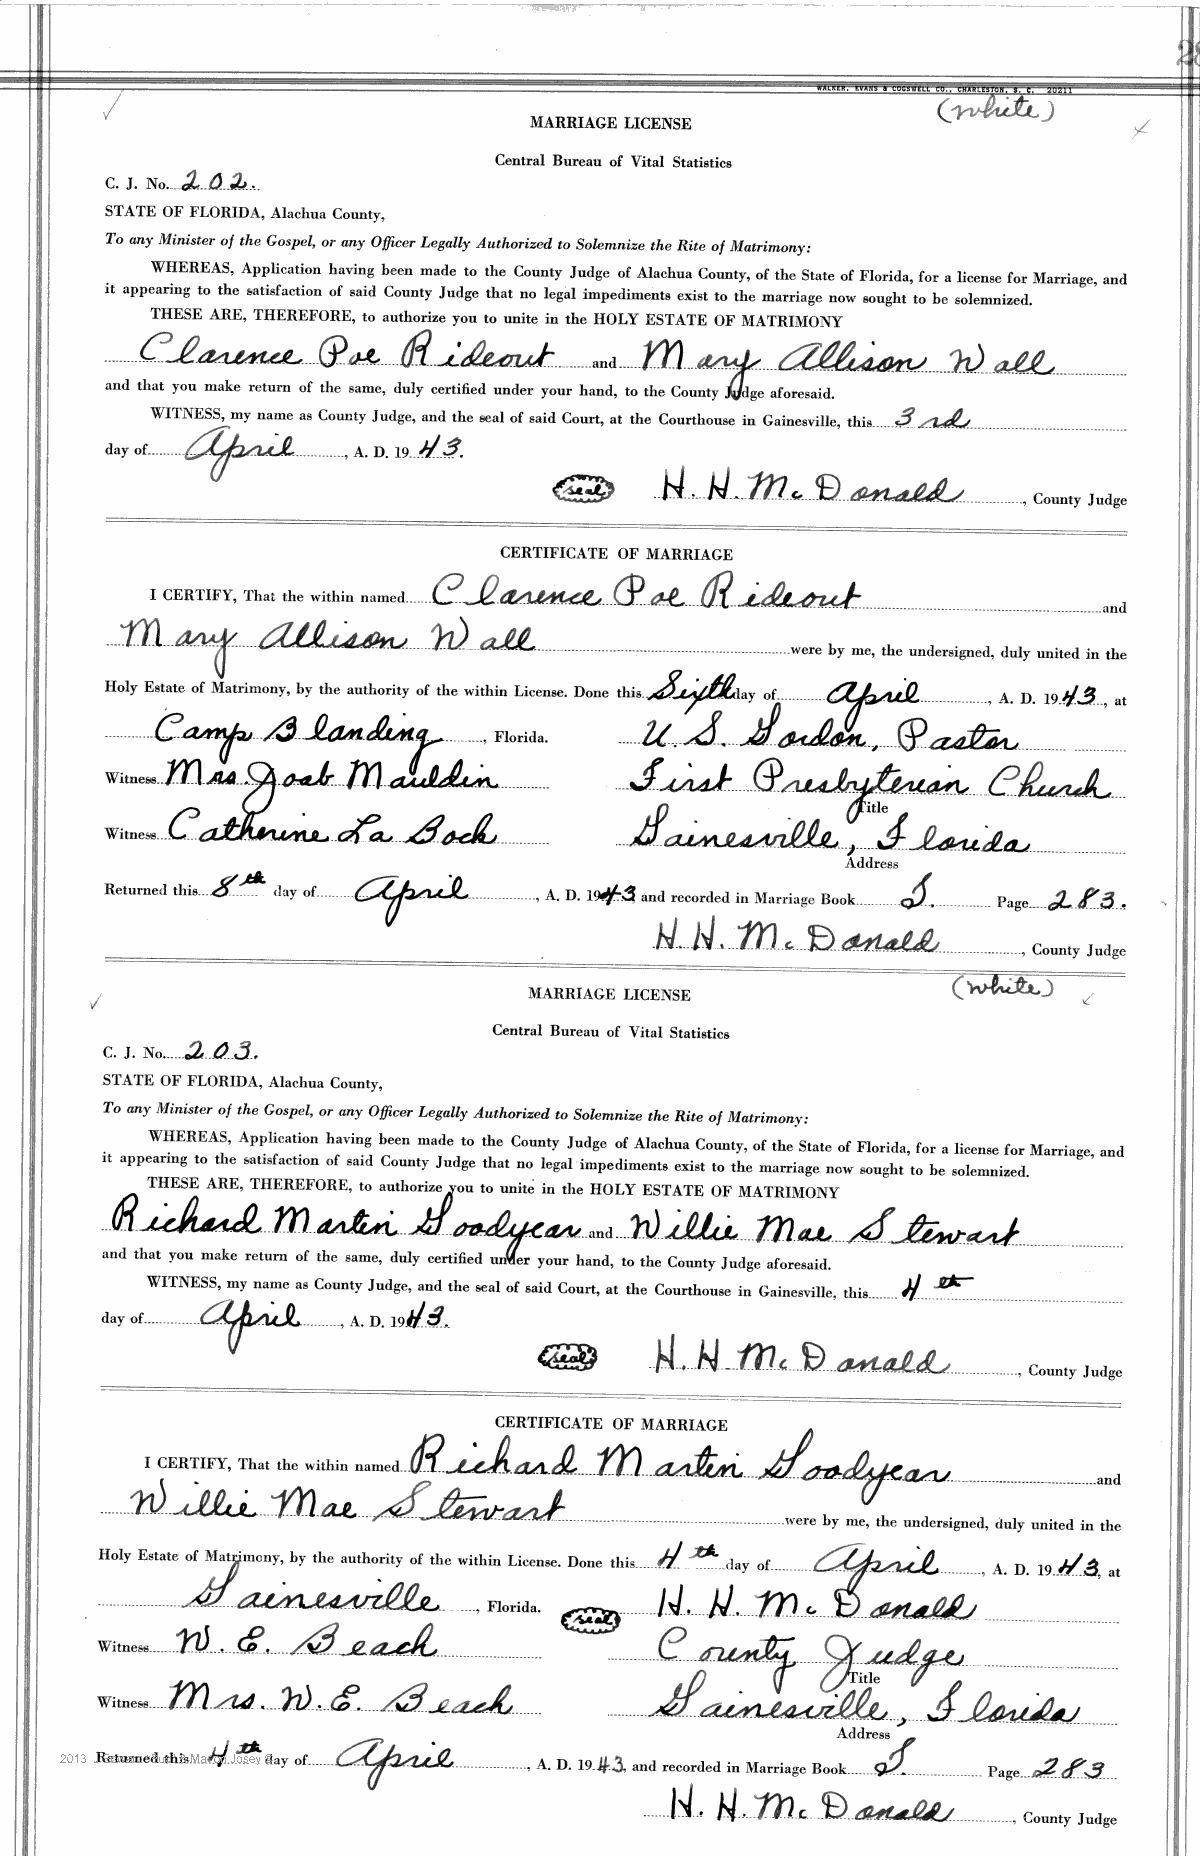 WALKER, EVANS & COGSWELL CO., CHARLESTON, S. C. 20211
(White)
MARRIAGE LICENSE
Central Bureau of Vital Statistics
C. J. No. 202.
STATE OF FLORIDA, Alachua County,
To any Minister of the Gospel, or any Officer Legally Authorized to Solemnize the Rite of Matrimony:
WHEREAS, Application having been made to the County Judge of Alachua County, of the State of Florida, for a license for Marriage, and
it appearing to the satisfaction of said County Judge that no legal impediments exist to the marriage now sought to be solemnized.
THESE ARE, THEREFORE, to authorize you to unite in the HOLY ESTATE OF MATRIMONY
Clarence Poe Rideout and Mary Allison Wall
and that you make return of the same, duly certified under your hand, to the County Judge aforesaid.
WITNESS, my name as County Judge, and the seal of said Court, at the Courthouse in Gainesville, this 3rd
day of April, A. D. 1943.
seal H. H. McDonald, County Judge
CERTIFICATE OF MARRIAGE
I CERTIFY, That the within named Clarence Poe Rideout and
Mary Allison Wall were by me, the undersigned, duly united in the
Holy Estate of Matrimony, by the authority of the within License. Done this Sixth day of April, A. D. 1943, at
Camp Blanding, Florida. U. S. Gordon, Pastor
Witness Mrs. Joab Mauldin First Presbyterian Church
Title
Witness Catherine La Boch Gainesville, Florida
Address
Returned this 8th day of April, A. D. 1943 and recorded in Marriage Book S. Page 283.
H. H. McDonald, County Judge
(White)
MARRIAGE LICENSE
Central Bureau of Vital Statistics
C. J. No. 203.
STATE OF FLORIDA, Alachua County,
To any Minister of the Gospel, or any Officer Legally Authorized to Solemnize the Rite of Matrimony:
WHEREAS, Application having been made to the County Judge of Alachua County, of the State of Florida, for a license for Marriage, and
it appearing to the satisfaction of said County Judge that no legal impediments exist to the marriage now sought to be solemnized.
THESE ARE, THEREFORE, to authorize you to unite in the HOLY ESTATE OF MATRIMONY
Richard Martin Goodyear and Willie Mae Stewart
and that you make return of the same, duly certified under your hand, to the County Judge aforesaid.
WITNESS, my name as County Judge, and the seal of said Court, at the Courthouse in Gainesville, this 4th
day of April, A. D. 1943.
seal H. H. McDonald, County Judge
CERTIFICATE OF MARRIAGE
I CERTIFY, That the within named Richard Martin Goodyear and
Willie Mae Stewart were by me, the undersigned, duly united in the
Holy Estate of Matrimony, by the authority of the within License. Done this 4th day of April, A. D. 1943, at
Gainesville, Florida. seal H. H. McDonald
Witness W. E. Beach County Judge
Title
Witness Mrs. W. E. Beach Gainesville, Florida
Address
2013
Returned this 4th day of April, A. D. 1943, and recorded in Marriage Book S. Page 283
H. H. McDonald, County Judge